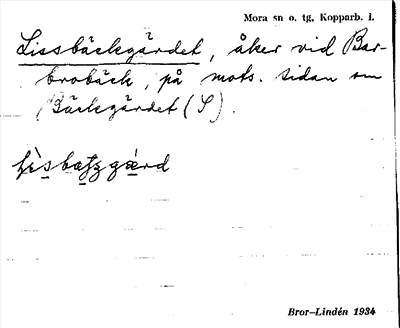 Mora sn o. tg, Kopparb. l.
Lissbäckgärdet, åker vid Bar-
brobäck, på mots. sidan om
Bäckgärdet (S).
Bror-Lindén 1934